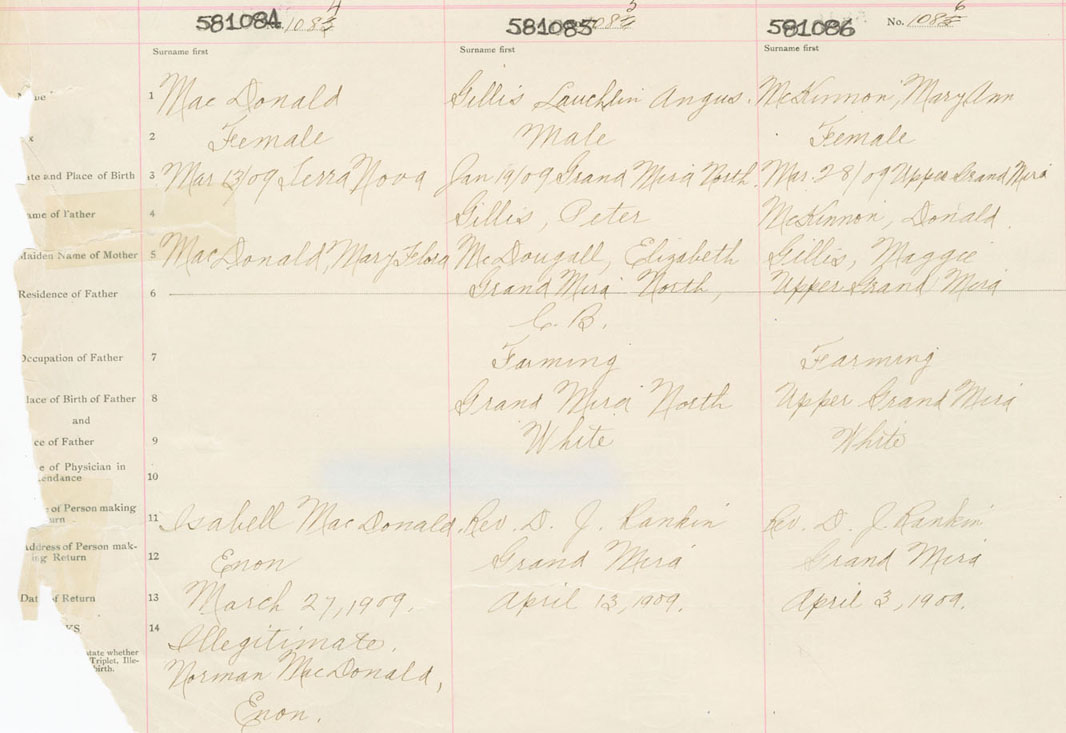 581084 581085 581086 No. 1086
Surname first Surname first Surname first
1 MacDonald Gillis Lauchlin Angus. McKinnon, Mary Ann
2 Female Male Female
ate and Place of Birth 3 Mar 13/09 Terra Nova Jan 19/09 Grand Mira North. Mar. 28/09 Upper Grand Mira
ame of Father 4 Gillis, Peter McKinnon, Donald.
Maiden Name of Mother 5 MacDonald, Mary Flora McDougall, Elizabeth Gillis, Maggie
Residence of Father 6 Grand Mira North, Upper Grand Mira
C. B.
Occupation of Father 7 Farming Farming
lace of Birth of Father 8 Grand Mira North Upper Grand Mira
and
ce of Father 9 White White
e of Physician in
endance 10
of Person making
urn 11 Isabell MacDonald. Rev. D. J. Rankin Rev. D. J. Rankin
Address of Person mak-
ing Return 12 Enon Grand Mira Grand Mira
Dat of Return 13 March 27, 1909. April 13, 1909. April 3, 1909.
KS 14 Illegitimate.
state whether
Triplet, Ille-
birth.
Norman MacDonald,
Enon.